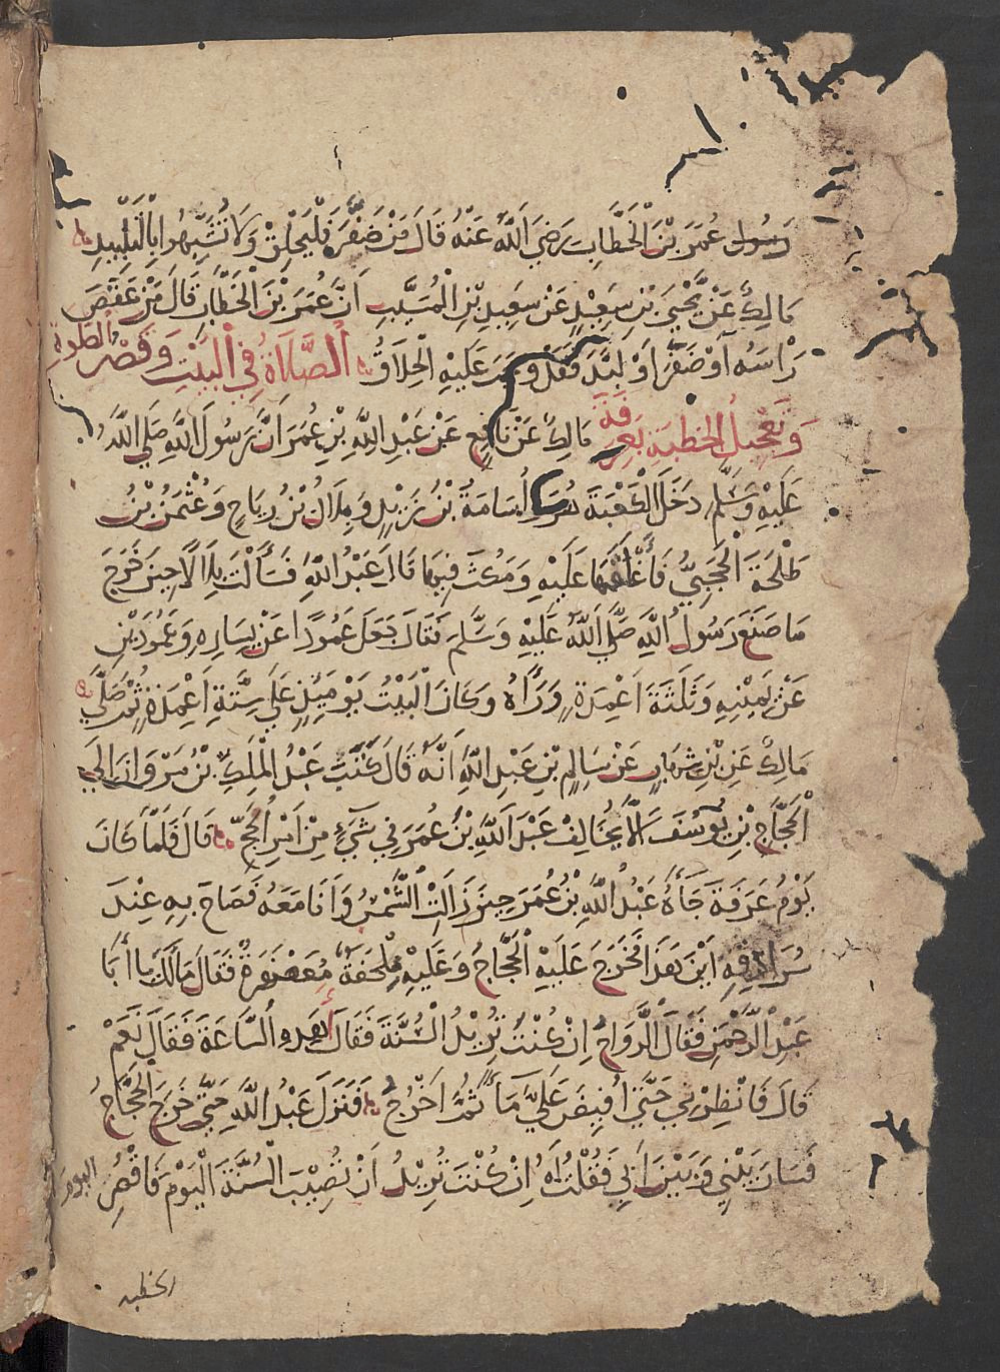 رسول عُمَرَ بْنَ الْخَطَّابِ رَضِيَ اللَّهُ عَنْهُ قَالَ مَنْ ضَفَّرَ فَلْيَحْلِقْ وَلَا تُشَبِّهُوا بِالتَّلْبِيدِ
مَالِكٌ عَنْ يَحْيَى بْنِ سَعِيْدٍ عَنْ سَعِيدِ بْنِ الْمُسَيَّبِ اَنَّ عُمَرَ بْنَ الْخَطَّابِ قَالَ مَنْ عَقَصَ
رَاسَهُ اَوْ ضَفَّرَ اَوْ لَبَّدَ فَقَدْ وجبَ عَلَيْهِ الْحِلَاقُ الصَّلَاةُ فِي الْبَيْتِ وَقَصْرُ الصَّلوة
وَتَعْجِيلُ الْخُطْبَةِ بِعَرَفَةَ مَالِكٌ عَنْ نَافِعٍ عَنْ عَبْدِ اللَّهِ بْنِ عُمَرَ اَنَّ رَسُولَ اللَّهِ صَلَّى اللَّهُ
عَلَيْهِ وَسَلَّمَ دَخَلَ الْكَعْبَةَ هُوَ وَاُسَامَةُ بْنُ زَيْدٍ وَبِلَالُ بْنُ رِبَاحٍ وَعُثْمَنُ بْنُ
طَلْحَةَ الْحَجَبِيُّ فَأَغْلَقَهَا عَلَيْهِ وَمَكَثَ فِيهَا قَالَ عَبْدُ اللَّهِ فَسَأَلْتُ بِلَالًا حِينَ خَرَجَ
مَا صَنَعَ رَسُولُ اللَّهِ صَلَّى اللَّهُ عَلَيْهِ وَسَلَّمَ فَقَالَ جَعَلَ عَمُودًا عَنْ يَسَارِهِ وَعَمُودَيْنِ
عَنْ يَمِيْنِهِ وَثَلَثَةَ اَعْمِدَةٍ وَرَآءَهُ وَكَانَ الْبَيْتُ يَوْمَئِذٍ عَلَى سِتَّةِ اَعْمِدَةٍ ثُمَّ صَلَّى
مَالِكٌ عَنِ بْنِ شِهَابٍ عَنْ سَالِمِ بْنِ عَبْدِ اللَّهِ اَنَّهُ قَالَ كَتَبَ عَبْدُ الْمَلِكِ بْنُ مَرْوَانَ اِلَى
الْحَجَّاجِ بْنِ يُوسُفَ اَلَّا يُخَالِفَ عَبْدَ اللَّهِ بْنَ عُمَرَ فِي شَيْءٍ مِنْ اَمْرِ الْحَجِّ قَالَ فَلَمَّا كَانَ
يَوْمُ عَرَفَةَ جَآءَهُ عَبْدُ اللَّهِ بْنُ عُمَرَ حِينَ زَالَتِ الشَّمْسُ وَاَنَا مَعَهُ فَصَاحَ بِهِ عِنْدَ
سُرَادِقِهِ اَيْنَ هَذَا فَخَرَجَ عَلَيْهِ الْحَجَّاجُ وَعَلَيْهِ مِلْحَفَةٌ مُعَصْفَرَةٌ فَقَالَ مَالَكَ يَا اَبَا
عَبْدِ الرَّحْمَنِ فَقَالَ الرَّوَاحَ اِنْ كُنْتَ تُرِيْدُ السُّنَّةَ فَقَالَ أَهَذِهِ السَّاعَةَ فَقَالَ نَعَمْ
قَالَ فَانْظِرْنِي حَتَّى اُفِيضَ عَلَيَّ مَآءً ثُمَّ اَخْرُجُ فَنَزَلَ عَبْدُ اللَّهِ حَتَّى خَرَجَ الْحَجَّاجُ
فَسَارَ بَيْنِي وَبَيْنَ اَبِي فَقُلْتُ لَهُ اِنْ كُنْتَ تُرِيْدُ اَنْ تُصِيْبَ السُّنَّةَ الْيَوْمَ فَاقْصُرِ اليوم
الخطبه